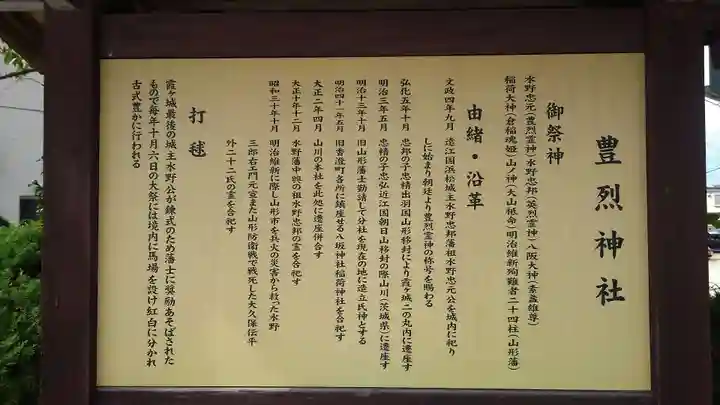 豊烈神社
御祭神
水野忠元(豊烈霊神)水野忠邦(英烈霊神)八阪大神(素盞雄尊)
稲荷大神(倉稲魂姫)山ノ神(大山祗命)明治維新殉難者二十四柱(山形藩)
由緒・沿革
文政四年九月 遠江国浜松城主水野忠邦藩祖水野忠元公を城内に祀り
しに始まり朝廷より豊烈霊神の称号を賜わる
弘化五年十月 忠邦の子忠精出羽国山形移封により霞ヶ城二の丸内に遷座す
明治三年五月 忠精の子忠弘近江国朝日山移封の際山川(茨城県)に遷座す
明治十三年十月 旧山形藩士勧請して分社を現在の地に造立氏神とする
明治四十一年五月 旧香澄町各所に鎮座せる八坂神社稲荷神社を合祀す
大正二年四月 山川の本社を此処に遷座併合す
大正十年十二月 水野藩中興の祖水野忠邦の霊を合祀す
昭和三十年十月 明治維新に際し山形市を兵火の災害から救った水野
三郎右ェ門元宣また山形防衛戦で戦死した大久保伝平
外二十二氏の霊を合祀す
打毬
霞ヶ城最後の城主水野公が錬武のため藩士に奨励あそばされた
もので毎年十月六日の大祭には境内に馬場を設け紅白に分かれ
古式豊かに行われる